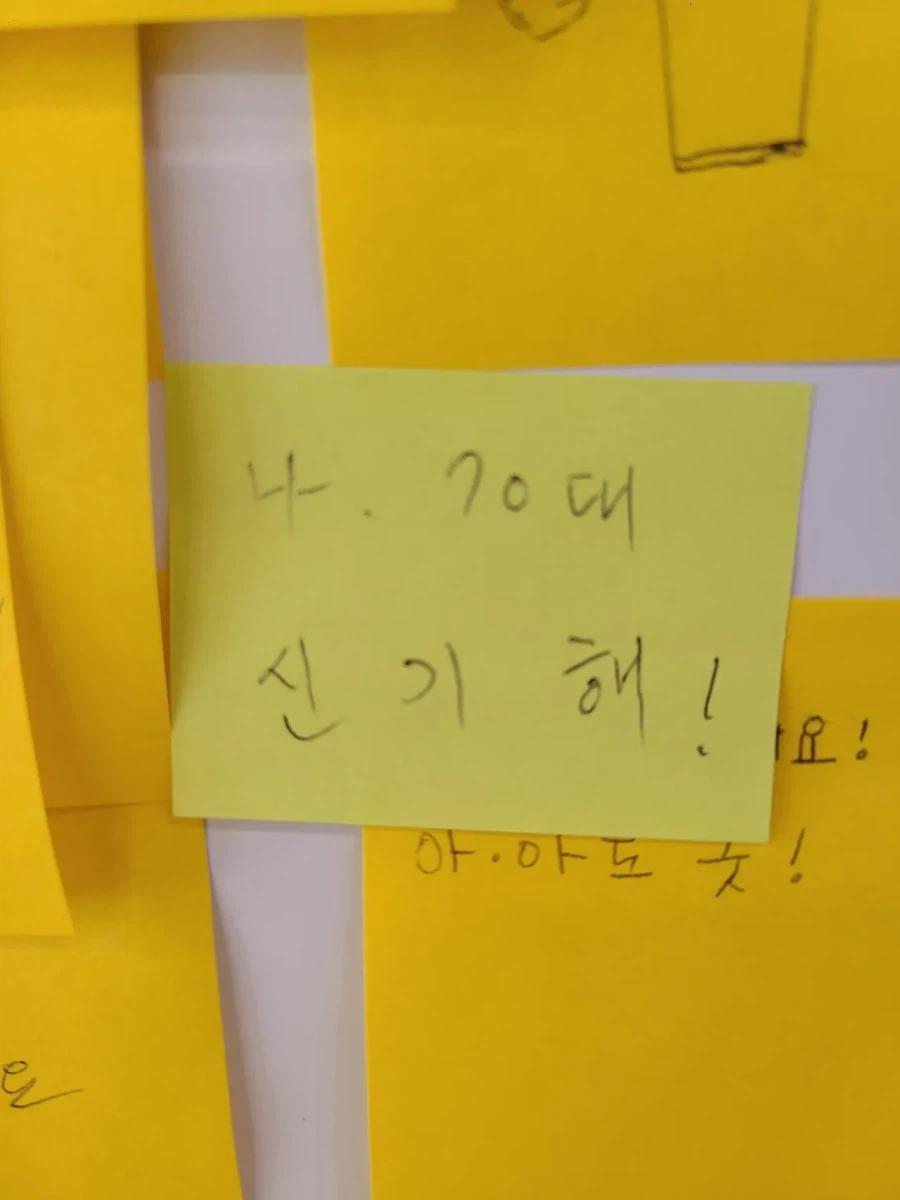 나. 70대
신기해!
요!
아·아도 굿!